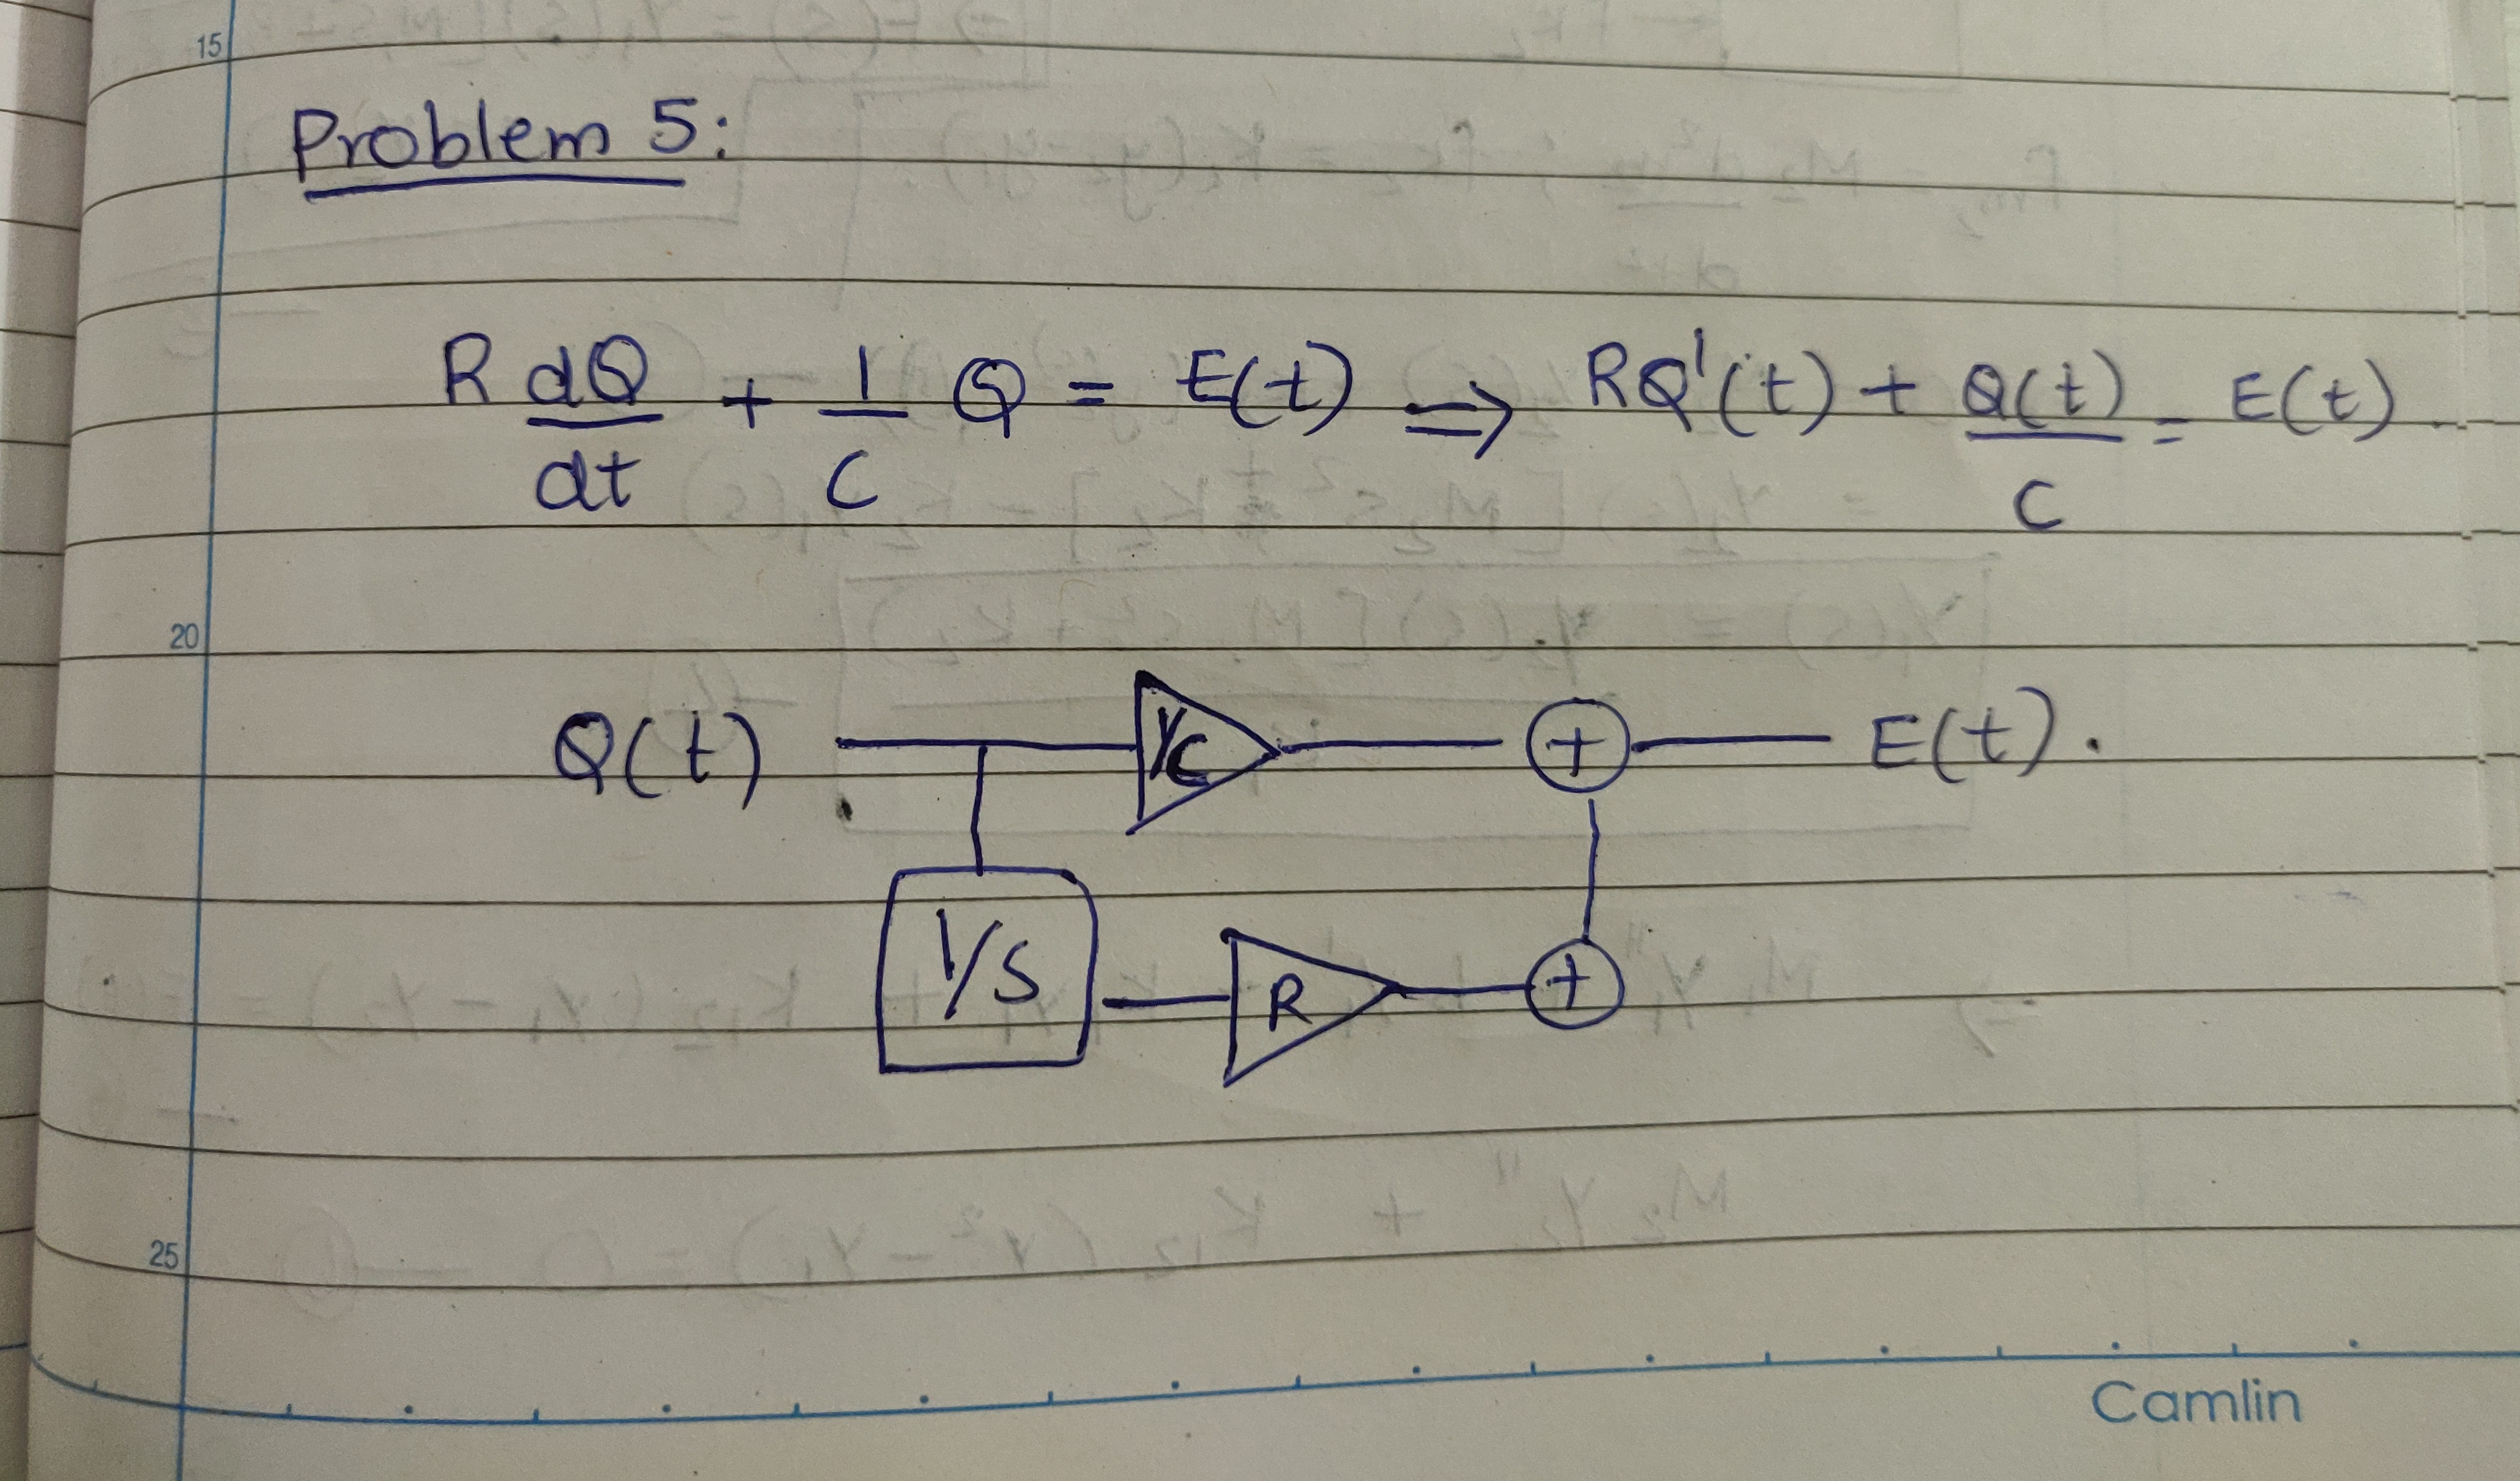 15
Problem 5:
R dQ/dt + 1/C Q = E(t) ⇒ RQ'(t) + Q(t)/C = E(t)
20
Q(t) 1/C + E(t).
1/S R +
25
Camlin